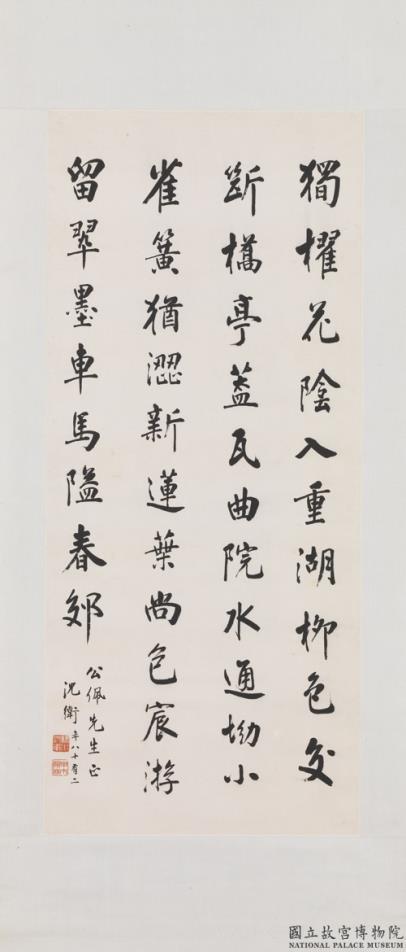 獨櫂花陰入重湖柳色交
斷橋亭蓋瓦曲院水通坳小
雀簧猶澀新蓮葉尚包宸游
留翠墨車馬隘春郊
公佩先生正
沈衛年八十有二
國立故宮博物院
NATIONAL PALACE MUSEUM